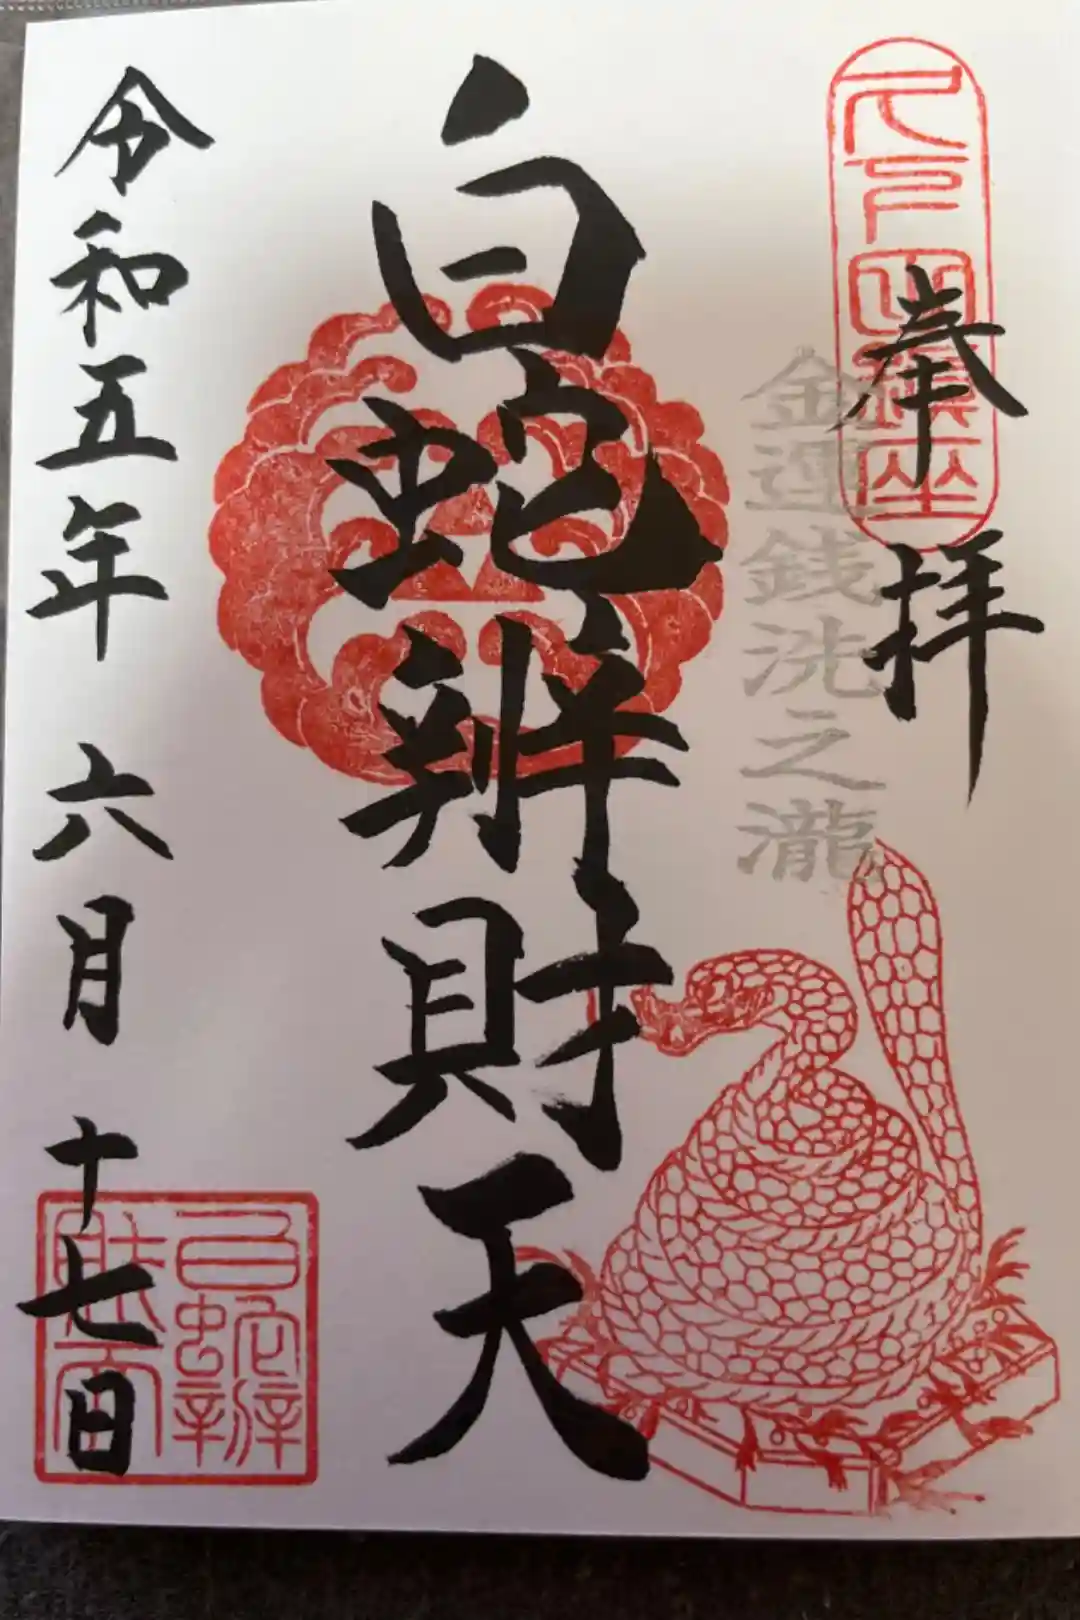 奉拝
鎮座
金運銭洗之瀧
白蛇辨財天
令和五年六月十七日
白蛇辨
財天